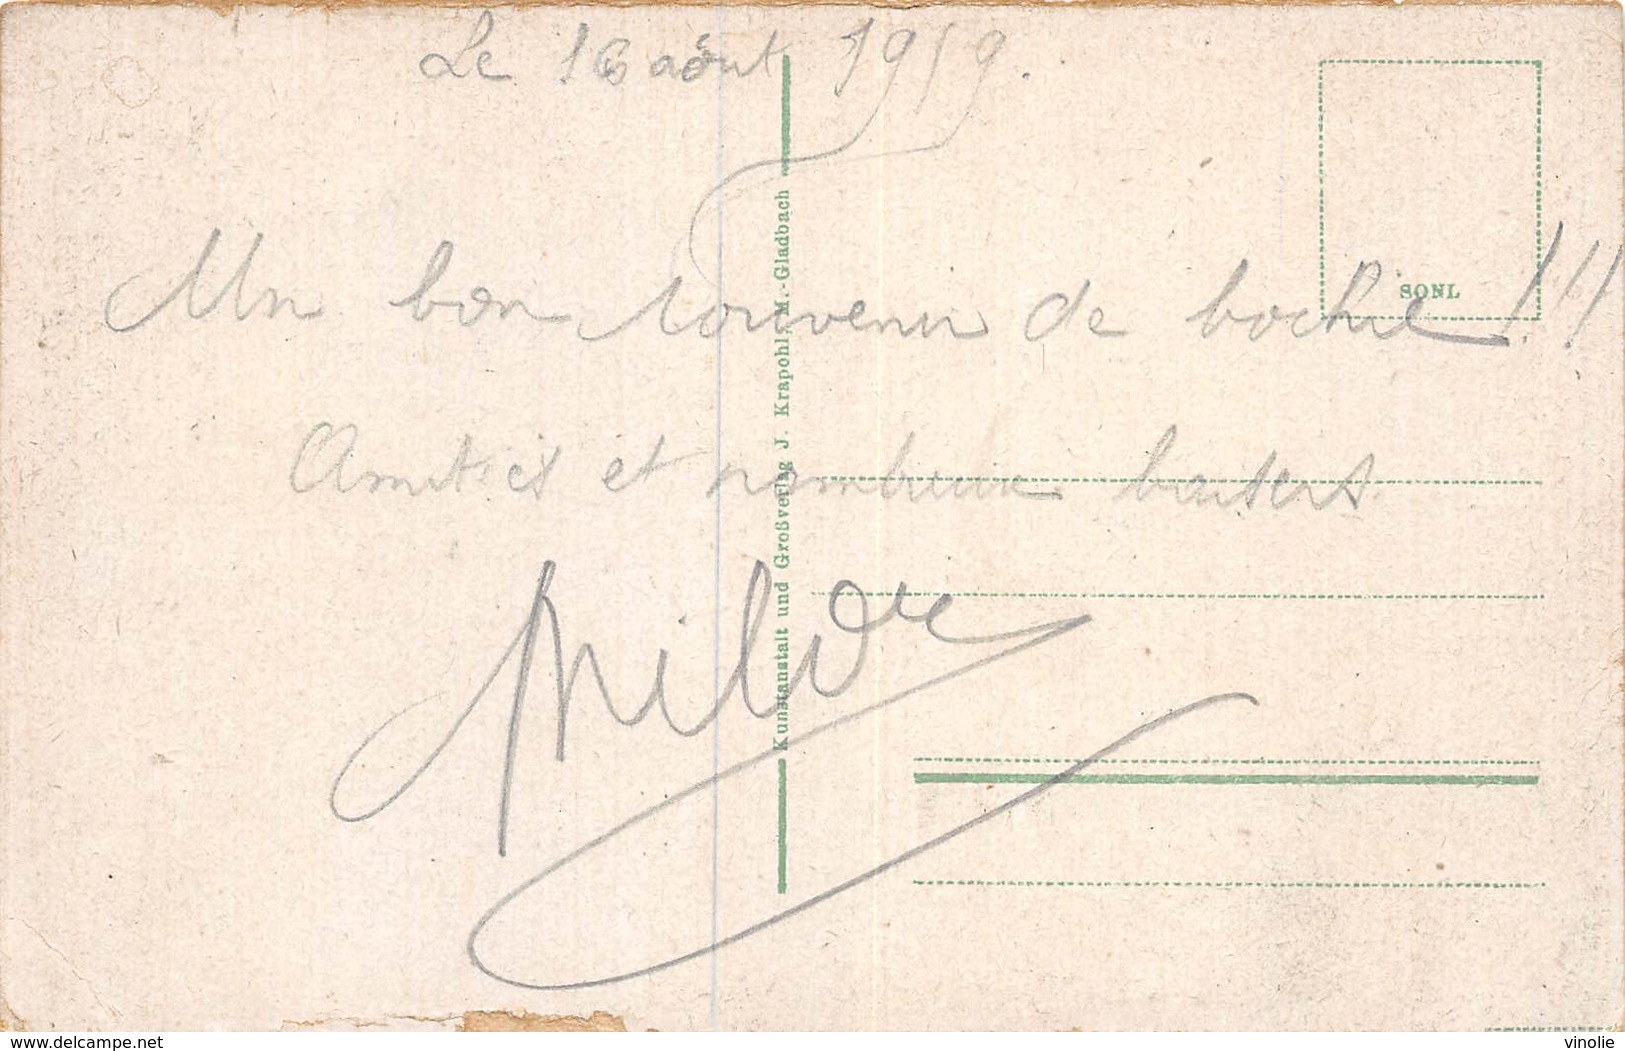 Le 16 août 1919.
Un bon souvenir de bochie !!!
Amitiés et nombreux baisers
Kunstanstalt und Großverlag J. Krapohl, M.-Gladbach
SONL
www.delcampe.net
vinolie